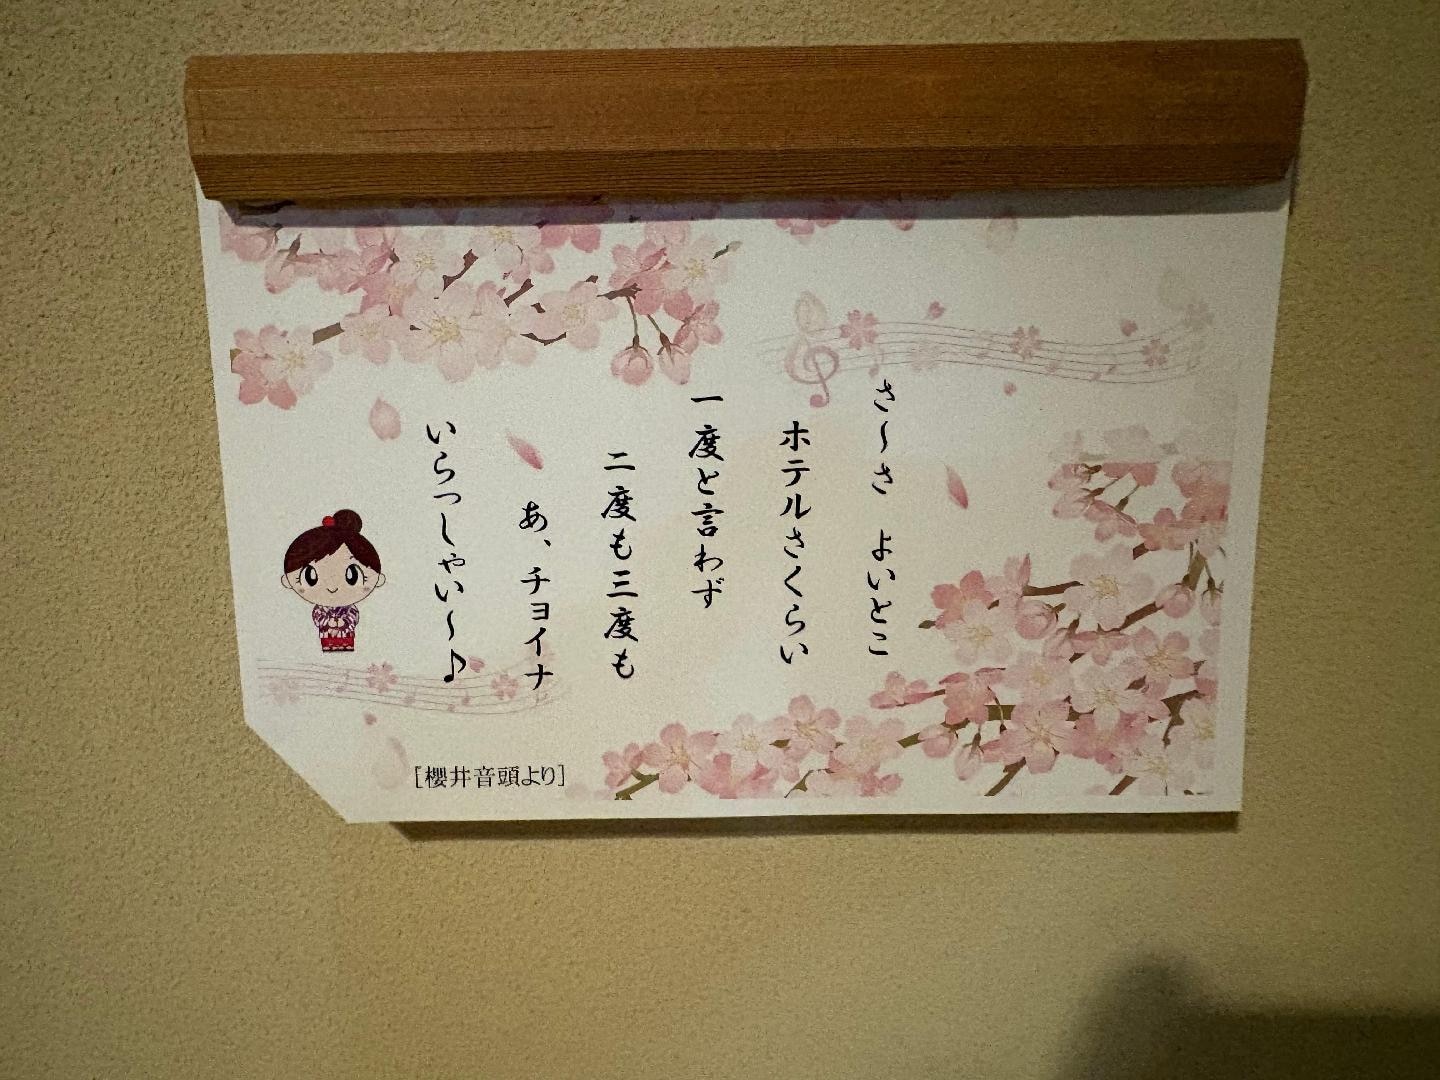 さ〜さ　よいとこ
ホテルさくらい
一度と言わず
二度も三度も
あ、チョイナ
いらっしゃい〜♪
［櫻井音頭より］